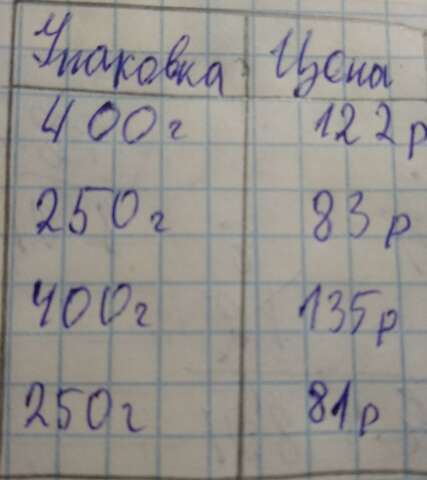 Упаковка Цена
400г 122р
250г 83р
400г 135р
250г 81р